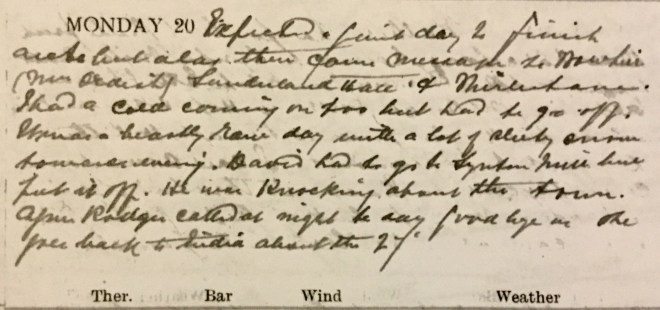 MONDAY 20 Expected a quiet day to finish
but alas there came message to
Sunderland Hall &
I had a cold coming on too but had to go off.
It was a beastly raw day with a lot of sleety snow
towards evening. David had to go to Mill but
put it off. He was knocking about the town.
Rodger called at night to say good bye as she
goes back to India about the
Ther. Bar Wind Weather